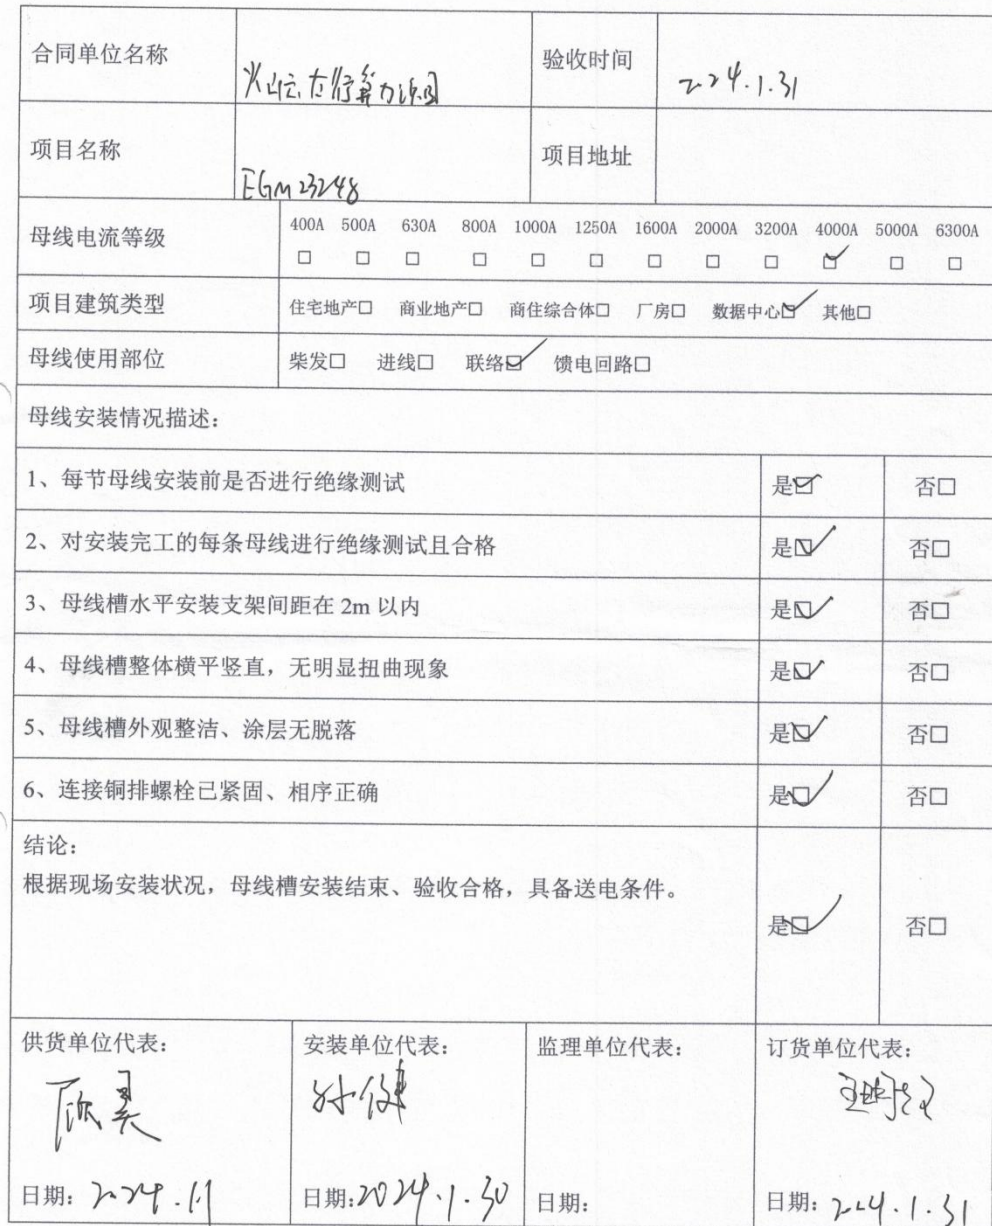 合同单位名称 火山云太行算力项目 验收时间 2024.1.31
项目名称 EGM23248 项目地址
母线电流等级 400A 500A 630A 800A 1000A 1250A 1600A 2000A 3200A 4000A 5000A 6300A
□ □ □ □ □ □ □ □ □ ☑ □ □
项目建筑类型 住宅地产□ 商业地产□ 商住综合体□ 厂房□ 数据中心☑ 其他□
母线使用部位 柴发□ 进线□ 联络☑ 馈电回路□
母线安装情况描述:
1、每节母线安装前是否进行绝缘测试 是☑ 否□
2、对安装完工的每条母线进行绝缘测试且合格 是☑ 否□
3、母线槽水平安装支架间距在 2m 以内 是☑ 否□
4、母线槽整体横平竖直，无明显扭曲现象 是☑ 否□
5、母线槽外观整洁、涂层无脱落 是☑ 否□
6、连接铜排螺栓已紧固、相序正确 是☑ 否□
结论:
根据现场安装状况，母线槽安装结束、验收合格，具备送电条件。
是☑ 否□
供货单位代表: 安装单位代表: 监理单位代表: 订货单位代表:
日期: 2024.1.1 日期: 2024.1.30 日期: 日期: 2024.1.31